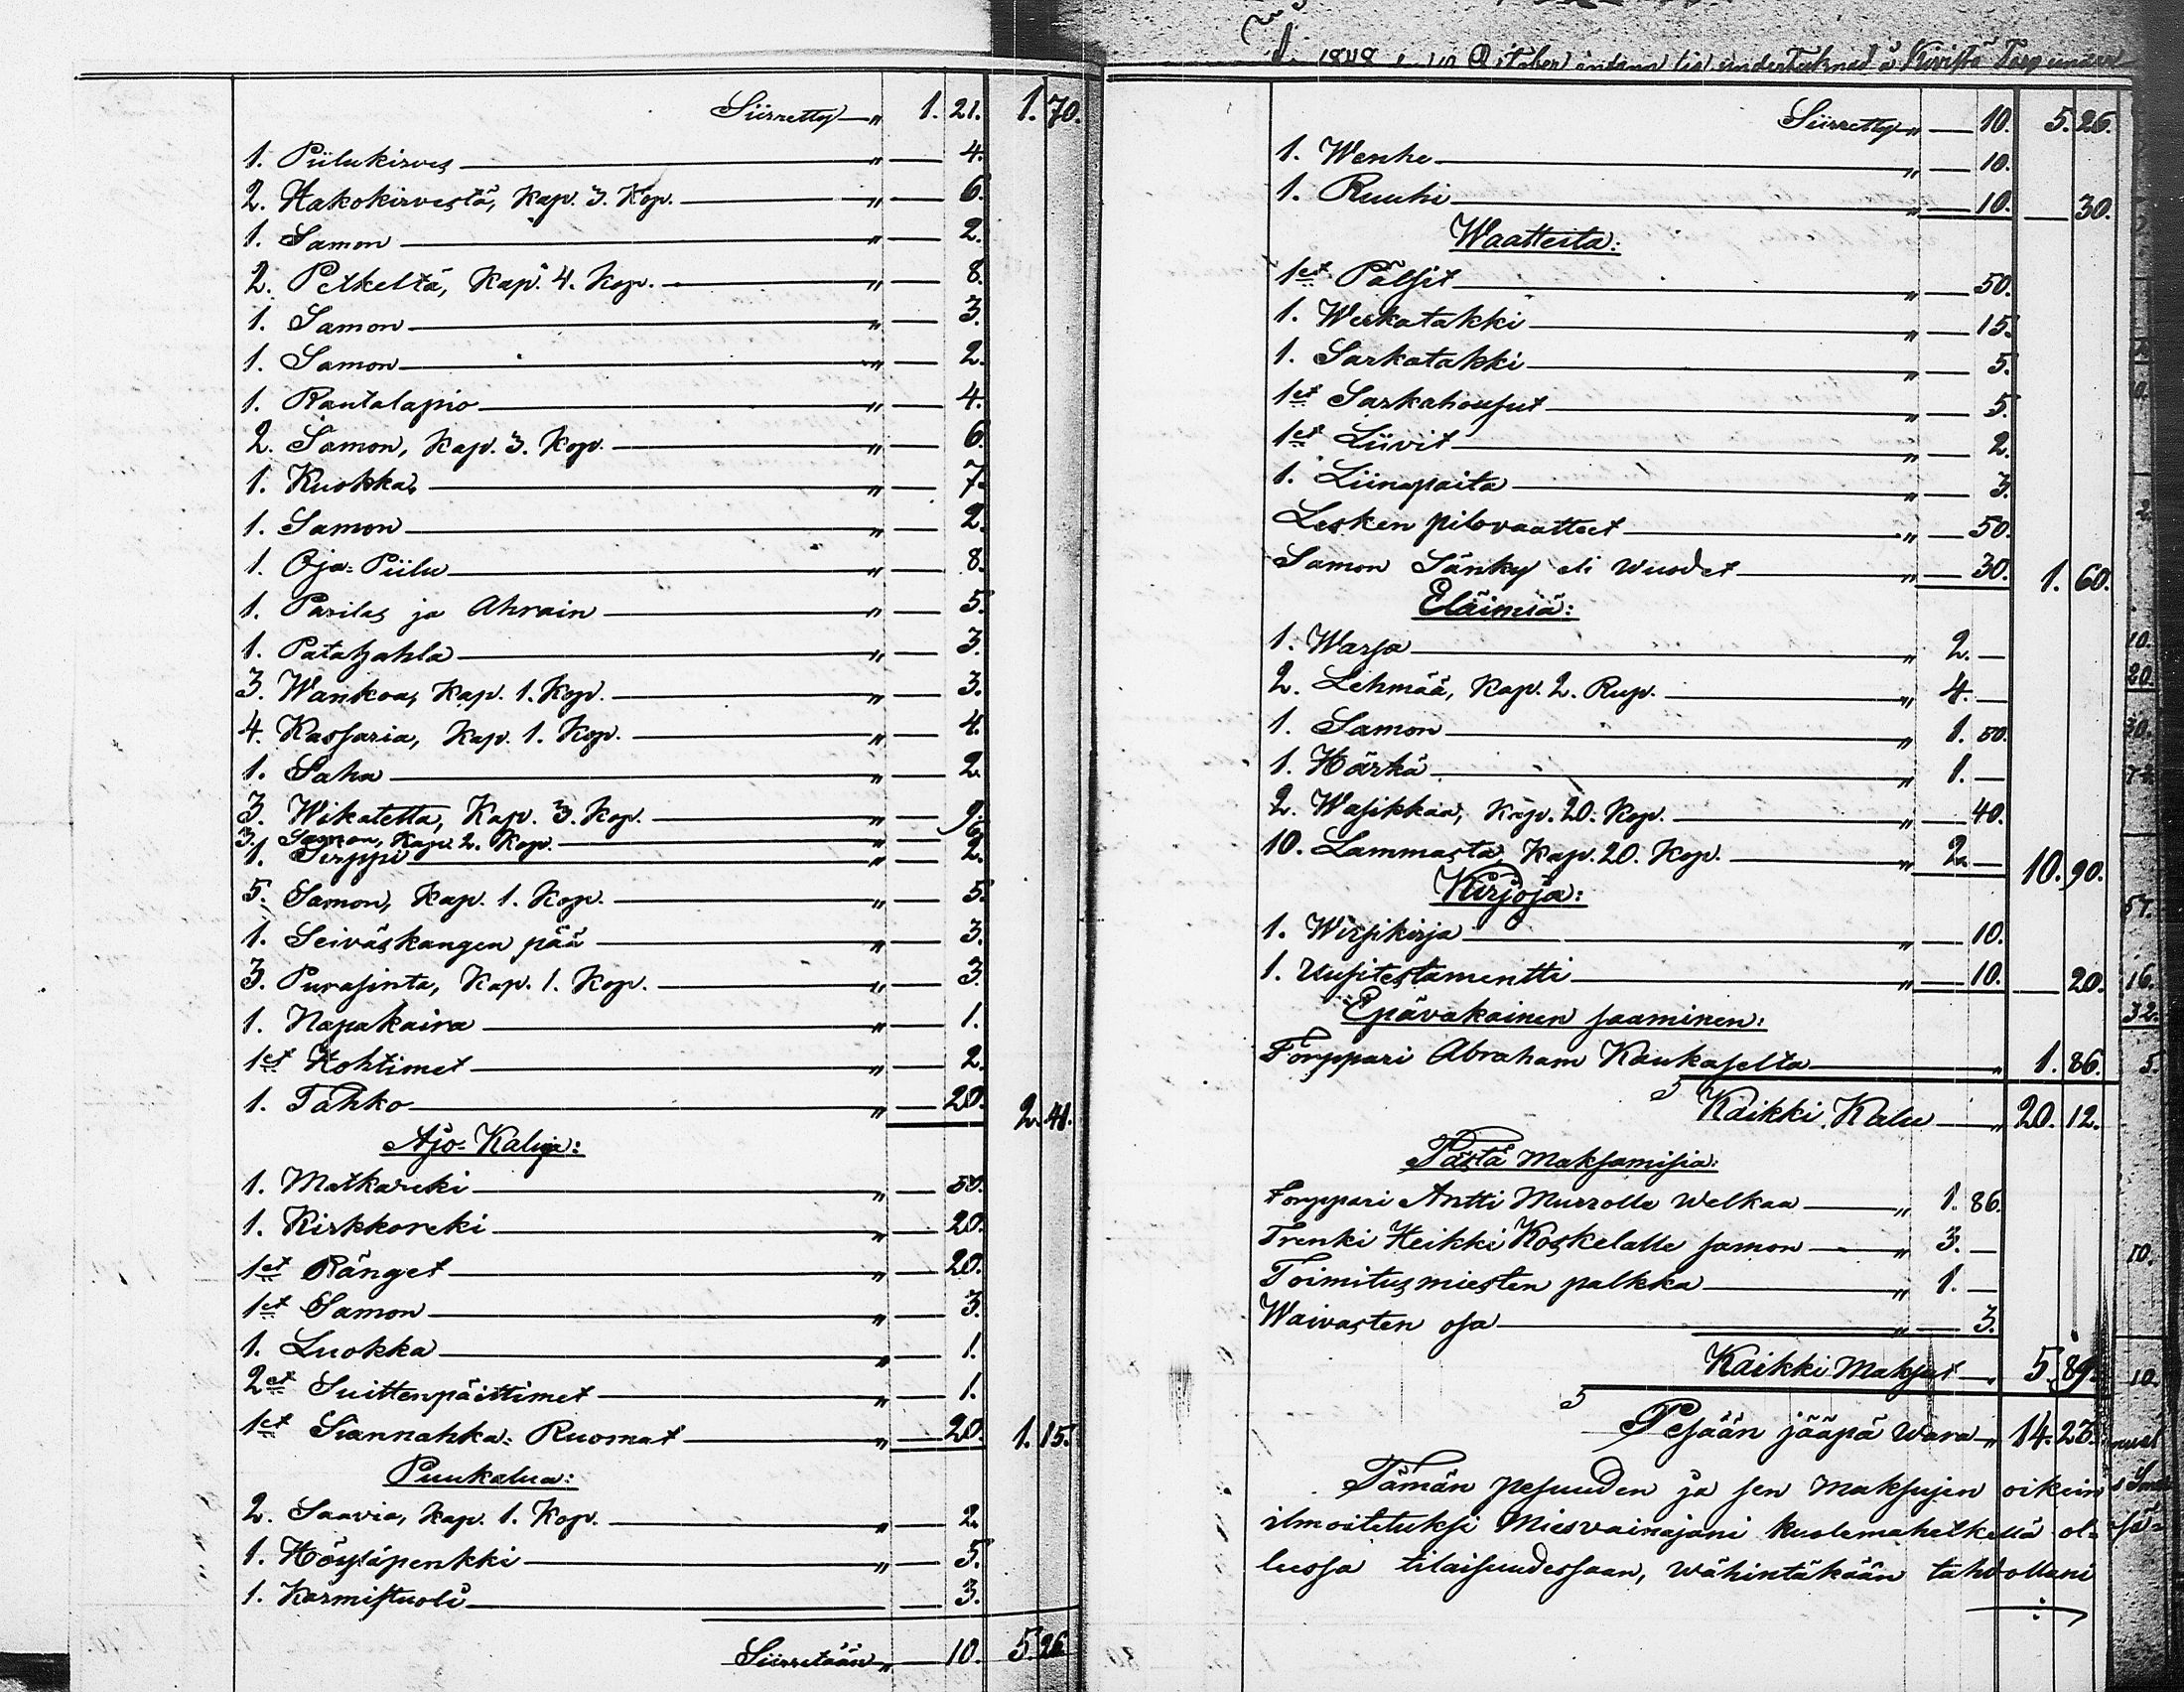 Siirretty „ 1. 21. 1. 70.
1. Piilukirves „ — 4.
2. Hakokirvestä, Kap. 3. Kop. „ — 6.
1. Samon „ — 2.
2. Petkeltä, Kap. 4. Kop. „ — 8.
1. Samon „ — 3.
1. Samon „ — 2.
1. Rautalapio „ — 4.
2. Samon, Kap. 3. Kop. „ — 6.
1. Kuokka „ — 7.
1. Samon „ — 2.
1. Oja-Piilu „ — 8.
1. Parilas ja Ahrain „ — 5.
1. Patahahla „ — 3.
3. Wankoa, Kap. 1. Kop. „ — 3.
4. Kassaria, Kap. 1. Kop. „ — 4.
1. Saha „ — 2.
3. Wikatetta, Kap. 3. Kop. „ — 9.
3. Samon, Kap. 2. Kop. „ — 6.
1. Sirppi „ — 2.
5. Samon, Kap. 1. Kop. „ — 5.
1. Seiväskangen pää „ — 3.
3. Purasinta, Kap. 1. Kop. „ — 3.
1. Napakaira „ — 1.
1et Hohtimet „ — 2.
1. Tahko „ — 20. 2. 41.
Ajo-Kaluja:
1. Matkareki „ — 50.
1. Kirkkoreki „ — 20.
1et Ränget „ — 20.
1et Samon „ — 3.
1. Luokka „ — 1.
2et Suittenpäittimet „ — 1.
1et Siannahka-Ruomat „ — 20. 1. 15.
Puukalua:
2. Saavia, Kap. 1. Kop. „ — 2.
1. Höyläpenkki „ — 5.
1. Karmistuoli — 3.
Siirretään „ — 10. 5. 26
1848 10 October undertecknad å Torp under
Siirretty „ — 10. 5. 26.
1. Wenhe „ — 10.
1. Ruuhi „ — 10. — 30.
Waatteita:
1et Pälsit „ — 50.
1. Werkatakki „ — 15.
1. Sarkatakki „ — 5.
1et Sarkahousut „ — 5.
1et Liivit „ — 2.
1. Liinapaita „ — 3.
Lesken pitovaatteet „ — 50.
Samon Sänky eli wuodet „ — 30. 1. 60.
Eläimiä:
1. Warsa „ 2. —
2. Lehmää, Kap. 2. Rup. „ 4. —
1. Samon „ 1. 50.
1. Härkä „ 1. —
2. Wasikkaa, Kap. 20. Kop. „ — 40.
10. Lammasta, Kap. 20. Kop. „ 2. — 10. 90.
Kirjoja:
1. Wirsikirja „ — 10.
1. Uusitestamentti „ — 10. — 20.
Epävakainen saaminen:
Torppari Abraham Kaukaselta „ 1. 86.
Kaikki Kalu „ 20. 12.
Tästä Maksamisia:
Torppari Antti Murrolle Welkaa „ 1. 86.
Trenki Heikki Koskelalle samon „ 3. —
Toimitusmiesten palkka „ 1. —
Waivasten osa „ — 3.
Kaikki Maksut „ 5. 89.
Pesään jääpä wara „ 14. 23.
Tämän pesuuden ja sen maksujen oikein
ilmoitetuksi Miesvainajani kuolemahetkellä ol=
lussa tilaisuudessaan, wähintäkään tahdollani